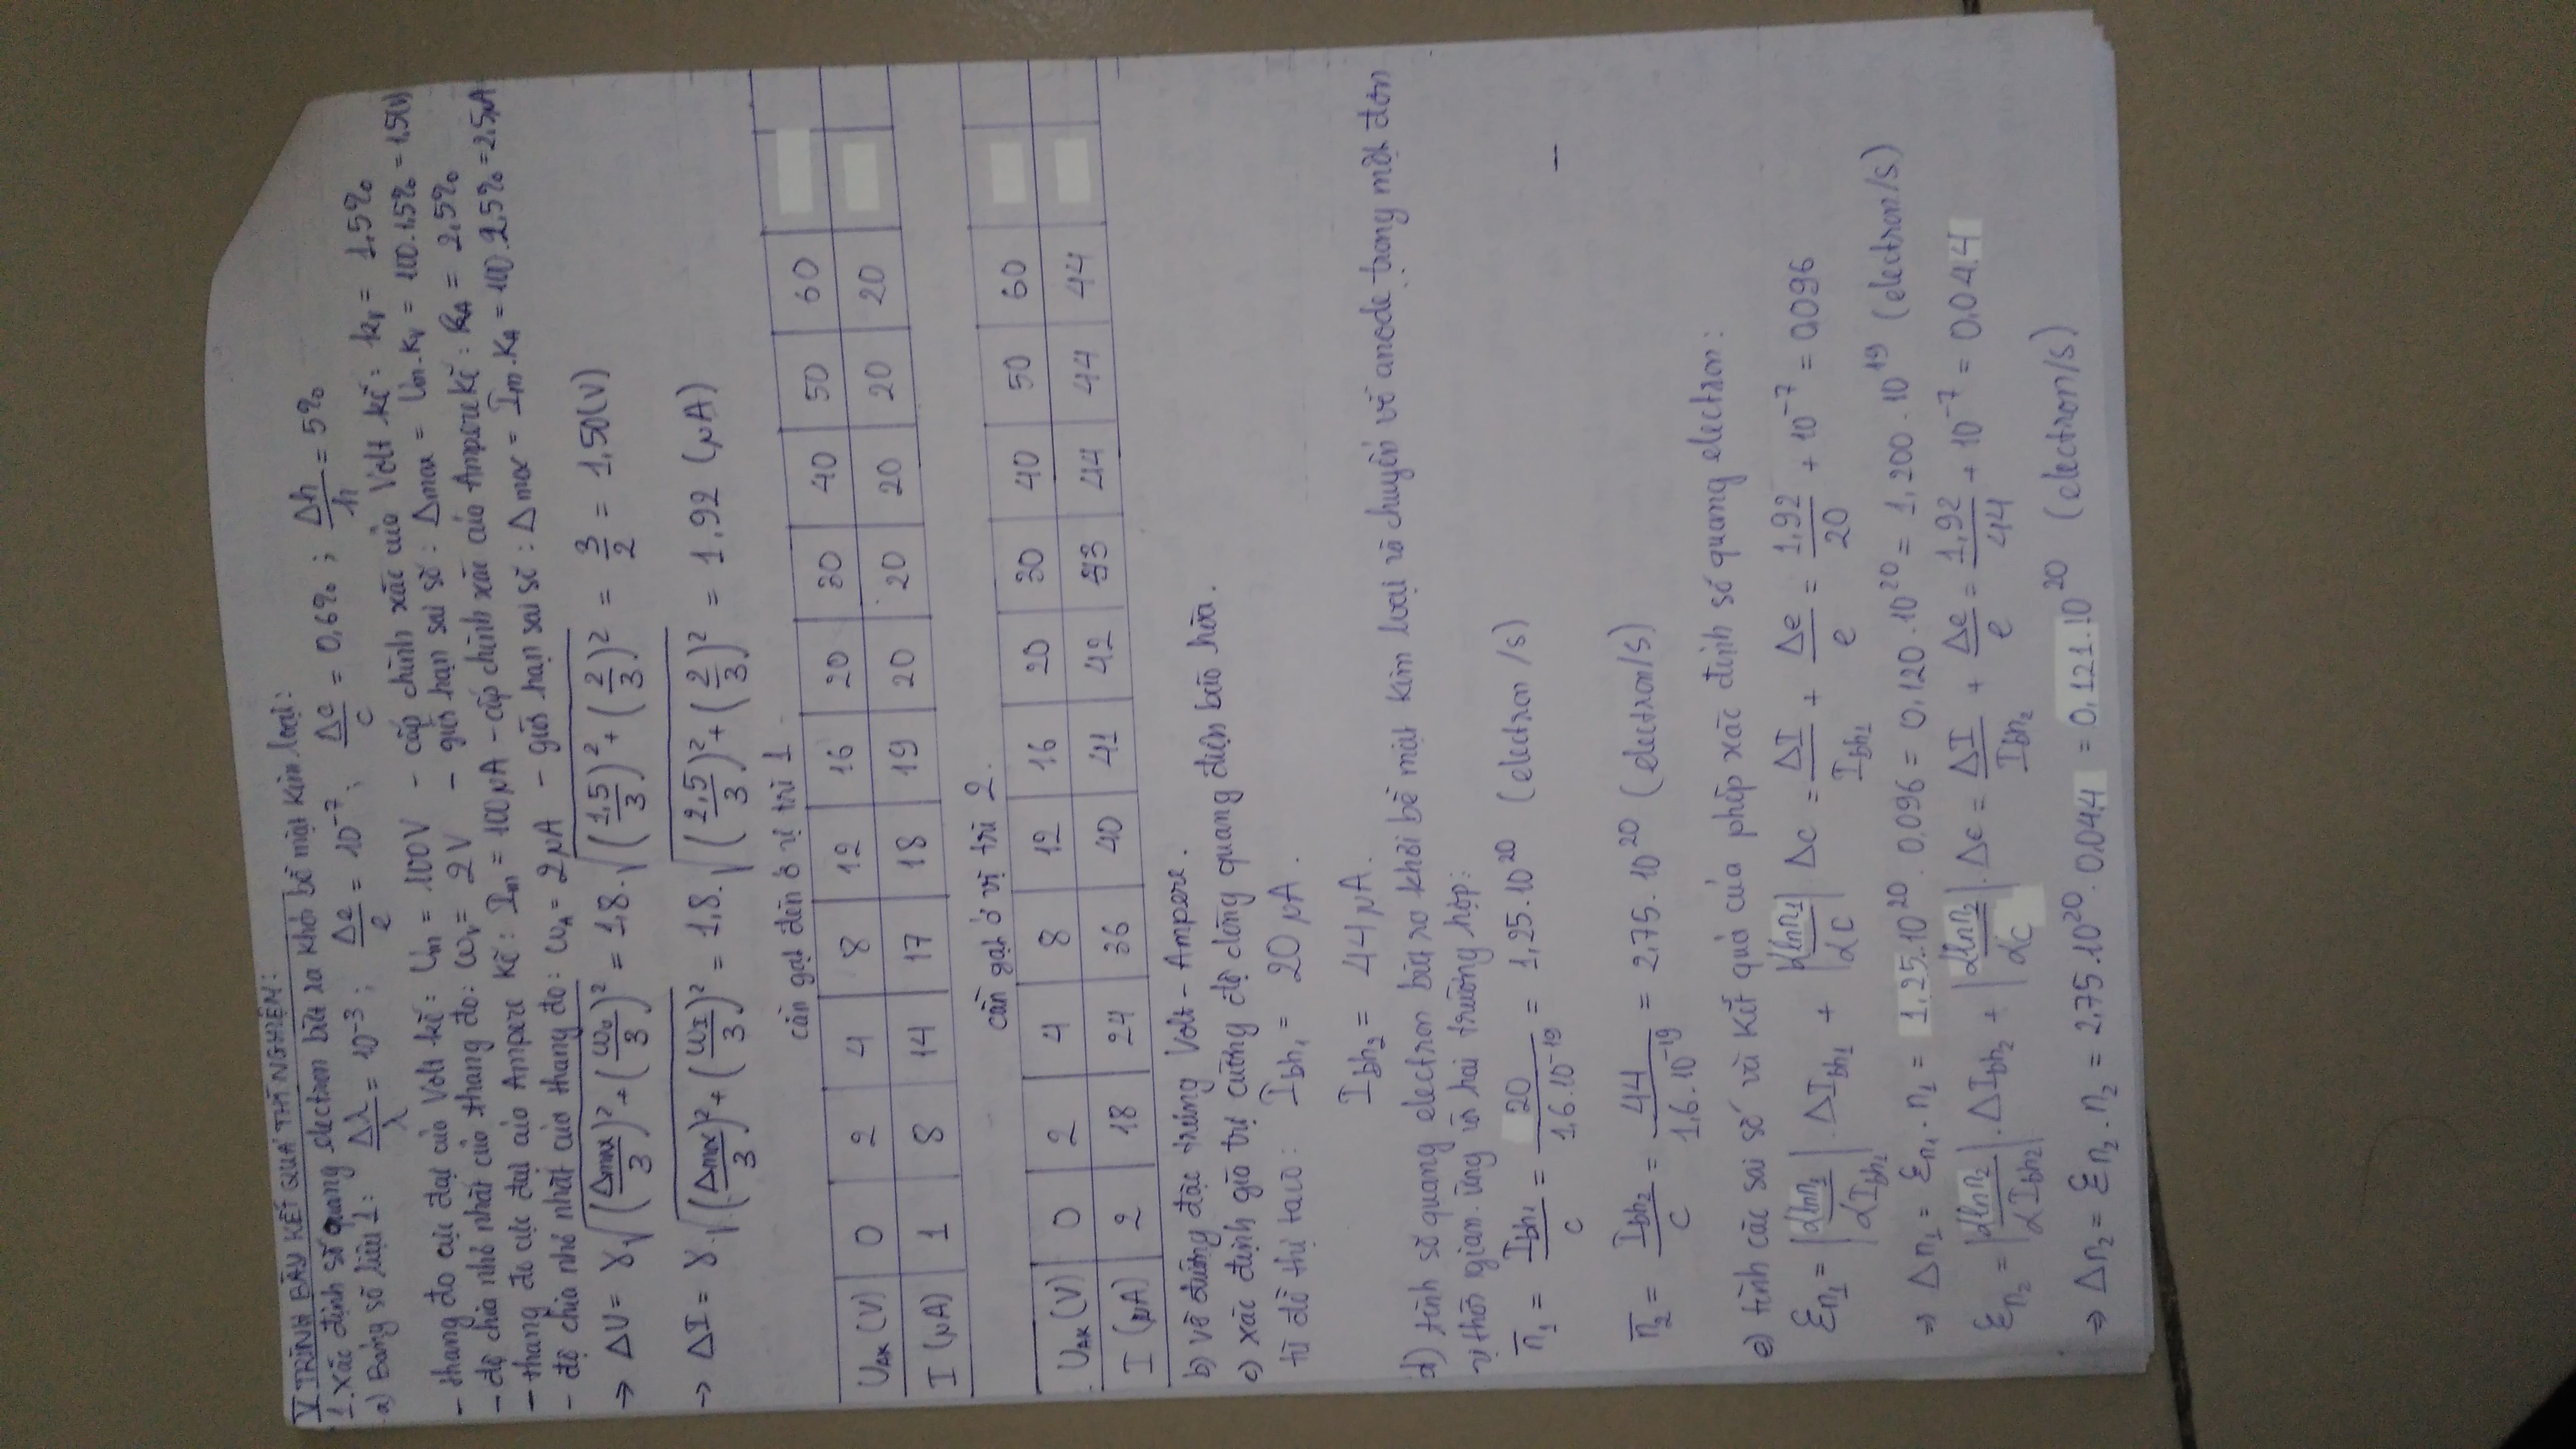 V TRÌNH BÀY KẾT QUẢ THÍ NGHIỆM:
1. Xác định số quang electron bứt ra khỏi bề mặt kim loại:
a) Bảng số liệu 1: Δλ/λ = 10⁻³ ; Δe/e = 10⁻⁷ ; Δc/c = 0,6% ; Δh/h = 5%
- thang đo cực đại của Volt kế: Um = 100V - cấp chính xác của Volt kế: kv = 1,5%
- độ chia nhỏ nhất của thang đo: ωv = 2V - giới hạn sai số: Δmax = Um.Kv = 100.1,5% = 1,5(V)
- thang đo cực đại của Ampere kế: Im = 100μA - cấp chính xác của Ampere kế: kA = 2,5%
- độ chia nhỏ nhất của thang đo: ωA = 2μA - giới hạn sai số: Δmax = Im.KA = 100.2,5% = 2,5μA
→ ΔU = γ√((Δmax/3)² + (ωv/3)²) = 1,8.√((1,5/3)² + (2/3)²) = 3/2 = 1,50(V)
→ ΔI = γ.√((Δmax/3)² + (ωI/3)²) = 1,8.√((2,5/3)² + (2/3)²) = 1,92 (μA)
cần gạt đèn ở vị trí 1
UAK (V) 0 2 4 8 12 16 20 30 40 50 60
I (μA) 1 8 14 17 18 19 20 20 20 20 20
cần gạt ở vị trí 2.
UAK (V) 0 2 4 8 12 16 20 30 40 50 60
I (μA) 2 18 24 36 40 41 42 43 44 44 44
b) vẽ đường đặc trưng Volt - Ampere.
c) xác định giá trị cường độ dòng quang điện bão hòa.
từ đồ thị ta có: Ibh₁ = 20 μA.
Ibh₂ = 44 μA.
d) tính số quang electron bứt ra khỏi bề mặt kim loại và chuyển về anode trong một đơn
vị thời gian. ứng với hai trường hợp:
n̄₁ = Ibh₁/c = 20/1,6.10⁻¹⁹ = 1,25.10²⁰ (electron/s)
n̄₂ = Ibh₂/c = 44/1,6.10⁻¹⁹ = 2,75.10²⁰ (electron/s)
e) tính các sai số và kết quả của phép xác định số quang electron:
Ɛn₁ = |αlnn₁/αIbh₁|.ΔIbh₁ + |αlnn₁/αc| Δc = ΔI/Ibh₁ + Δe/e = 1,92/20 + 10⁻⁷ = 0,096
⇒ Δn₁ = Ɛn₁.n₁ = 1,25.10²⁰.0,096 = 0,120.10²⁰ = 1,200.10¹⁹ (electron/s)
Ɛn₂ = |αlnn₂/αIbh₂|.ΔIbh₂ + |αlnn₂/αc|.Δc = ΔI/Ibh₂ + Δe/e = 1,92/44 + 10⁻⁷ = 0,044
⇒ Δn₂ = Ɛn₂.n₂ = 2,75.10²⁰.0,044 = 0,121.10²⁰ (electron/s)